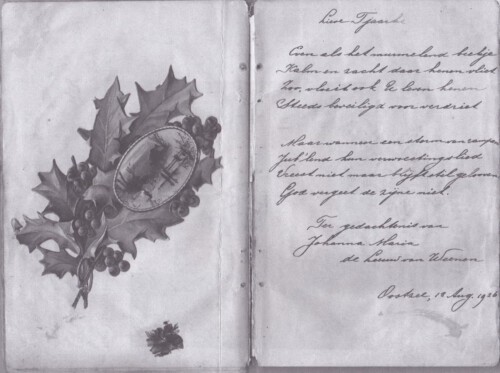 Lieve Tjaarke
Even als het murmelend beekje
Kalm en zacht daar henen vliet
Zoo, vloeit ook Uw leven henen
Steeds beveiligd voor verdriet
Maar wanneer een storm van rampen
Jub'lend hun verwoestingslied
Vreest niet maar blijft stil gelooven
God vergeet de zijne niet.
Ter gedachtenis van
Johanna Maria
de Leeuw van Weenen
Oostzee, 18 Aug. 1926